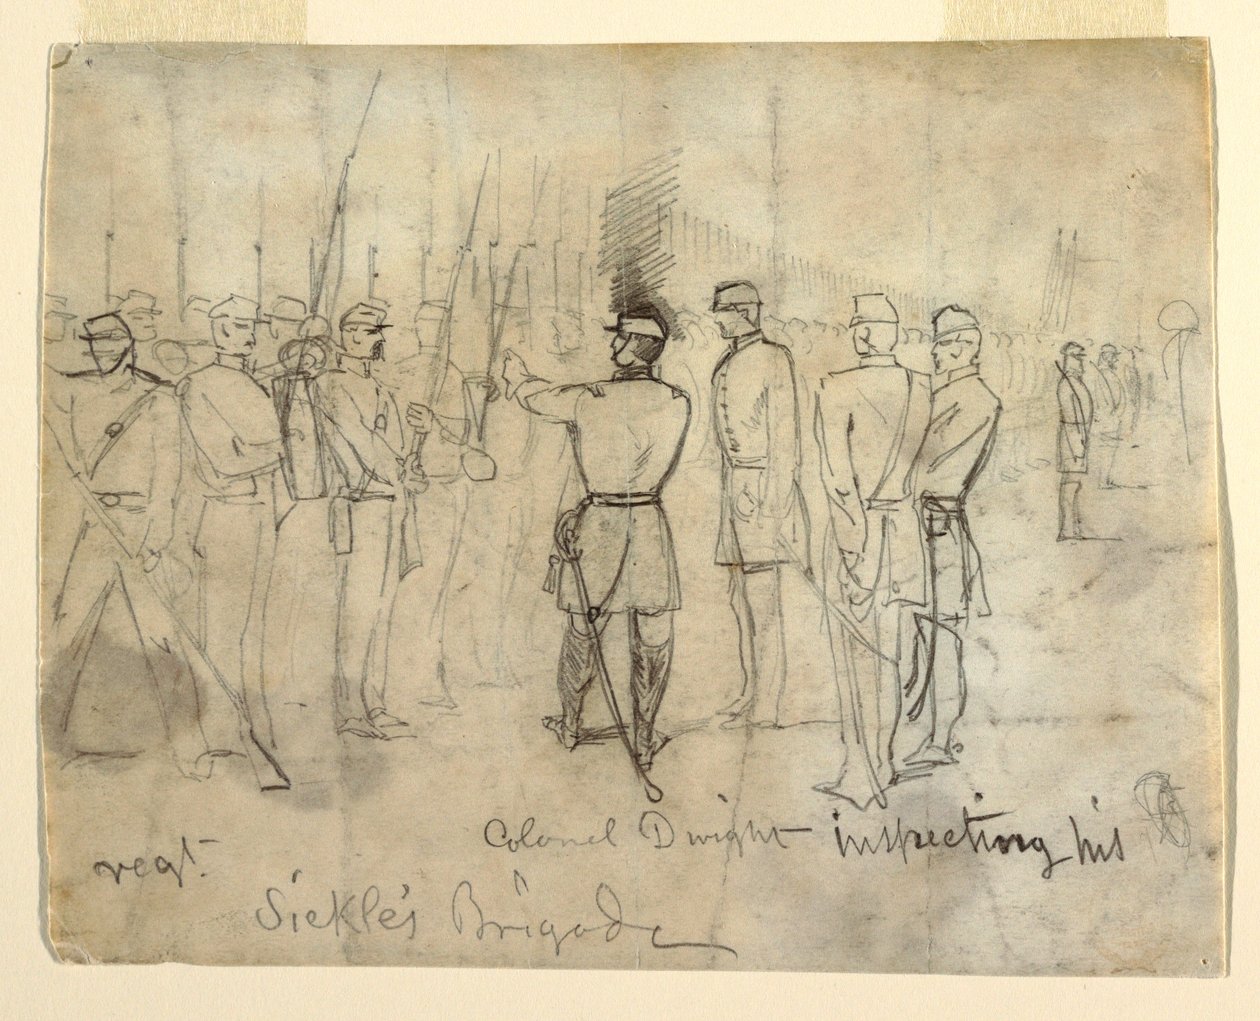 Colonel Dwight inspecting his
regt.
Sickle's Brigade